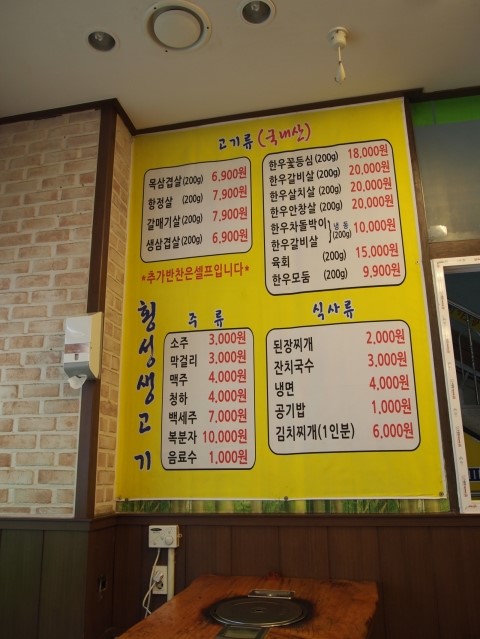 고기류(국내산)
목삼겹살(200g) 6,900원
항정살 (200g) 7,900원
갈매기살(200g) 7,900원
생삼겹살(200g) 6,900원
*추가반찬은셀프입니다*
한우꽃등심(200g) 18,000원
한우갈비살(200g) 20,000원
한우살치살(200g) 20,000원
한우안창살(200g) 20,000원
한우차돌박이
한우갈비살 } 냉동 (200g) 10,000원
육회 (200g) 15,000원
한우모둠 (200g) 9,900원
횡성생고기
주류
소주 3,000원
막걸리 3,000원
맥주 4,000원
청하 4,000원
백세주 7,000원
복분자 10,000원
음료수 1,000원
식사류
된장찌개 2,000원
잔치국수 3,000원
냉면 4,000원
공기밥 1,000원
김치찌개(1인분) 6,000원